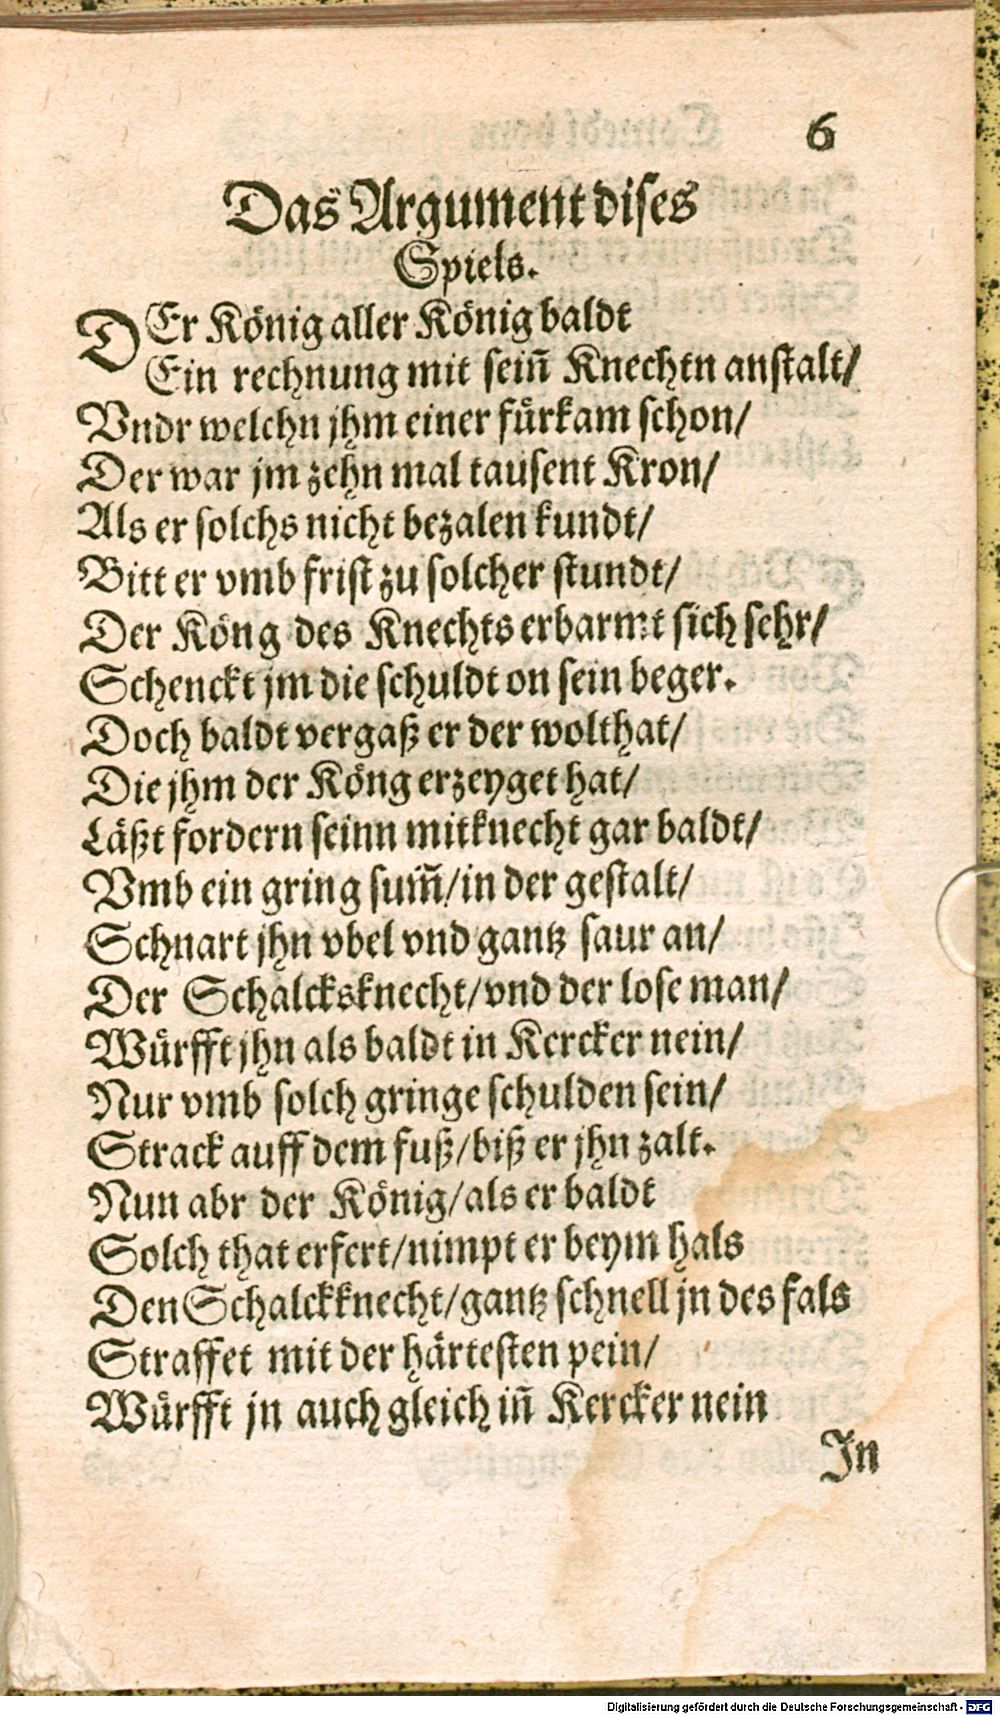 6
Das Argument dises
Spiels.
DEr König aller König baldt
Ein rechnung mit sein̄ Knechtn anstalt/
Vndr welchn jhm einer fürkam schon/
Der war jm zehn mal tausent Kron/
Als er solchs nicht bezalen kundt/
Bitt er vmb frist zu solcher stundt/
Der Köng des Knechts erbarmt sich sehr/
Schenckt jm die schuldt on sein beger.
Doch baldt vergaß er der wolthat/
Die jhm der Köng erzeyget hat/
Läßt fordern seinn mitknecht gar baldt/
Vmb ein gring sum̄/in der gestalt/
Schnart jhn vbel vnd gantz saur an/
Der Schalcksknecht/vnd der lose man/
Würfft jhn als baldt in Kercker nein/
Nur vmb solch gringe schulden sein/
Strack auff dem fuß/biß er jhn zalt.
Nun abr der König/als er baldt
Solch that erfert/nimpt er beym hals
Den Schalckknecht/gantz schnell jn des fals
Straffet mit der härtesten pein/
Würfft jn auch gleich in̄ Kercker nein
Jn
Digitalisierung gefördert durch die Deutsche Forschungsgemeinschaft - DFG